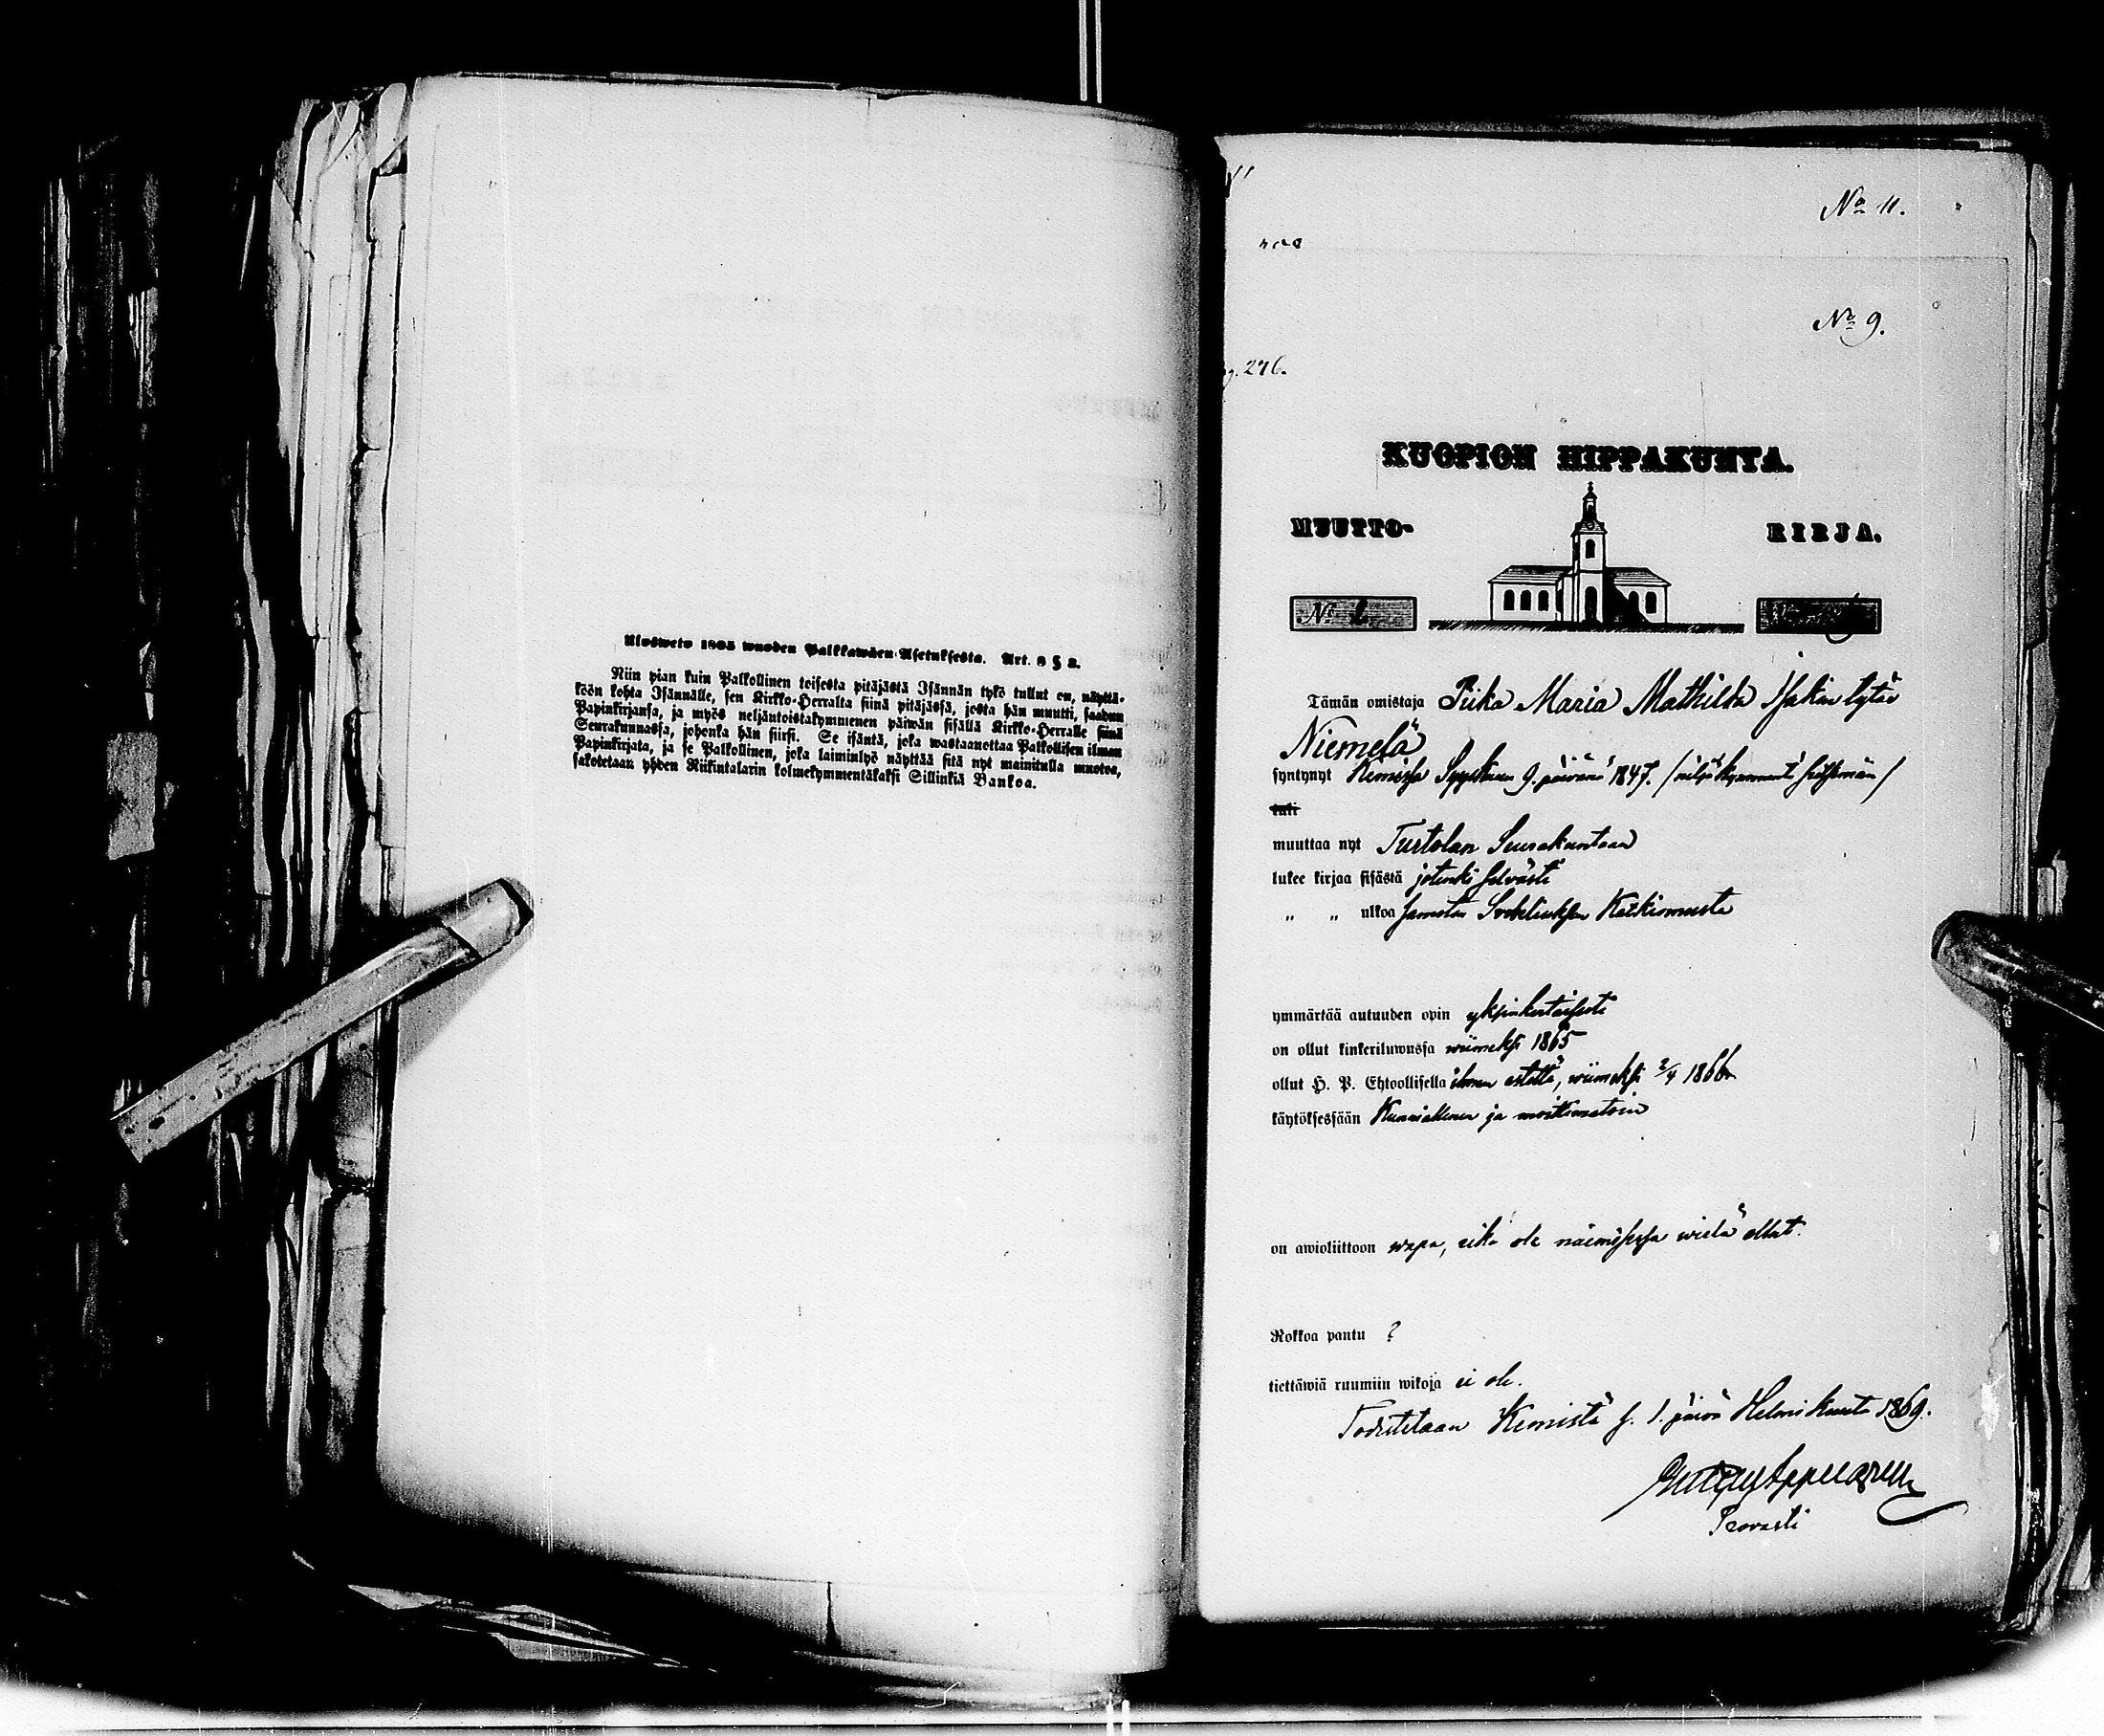 Ulosweto 1805 wuoden Palkkawäen Asetuksesta. Art. 8 § 2.
Niin pian kuin Palkollinen toisesta pitäjästä Isännän tykö tullut on, näyttä-
köön kohta Isännälle, sen Kirkko-Herralta siinä pitäjässä, josta hän muutti, saadun
Papinkirjansa, ja myös neljäntoistakymmenen päiwän sisällä Kirkko-Herralle siinä
Seurakunnassa, johonka hän siirsi. Se isäntä, joka wastaanottaa Palkollisen ilman
Papinkirjata, ja se Palkollinen, joka laiminlyö näyttää sitä nyt mainitulla muotoa,
sakotetaan yhden Riikintalarin kolmekymmentäkaksi Sillinkiä Bankoa.
No 11.
No 9.
276.
KUOPION HIPPAKUNTA.
MUUTTO- KIRJA.
No
Tämän omistaja Piika Maria Mathilda Isakin tytär
Niemelä
syntynyt Kemissä Syyskuun 9. päivänä 1847. /neljäkymmentä seitsemän/
tuli
muuttaa nyt Turtolan Seurakuntaan
lukee kirjaa sisästä jotenki selvästi
„ „ ulkoa samoten Svebeliuksen Katkismusta
ymmärtää autuuden opin yksinkertaisesti
on ollut kinkeriluwussa wiimeksi 1865
ollut H. P. Ehtoollisella ilman estettä, wiimeksi 2/4 1866
käytöksessään Kunniallinen ja moitteetoin
on awioliittoon wapa, eikä ole naimisessa wielä ollut.
Rokkoa pantu ?
tiettäwiä ruumiin wikoja ei ole.
Todistetaan Kemistä s. 1. päivä Helmikuuta 1869.
Provasti